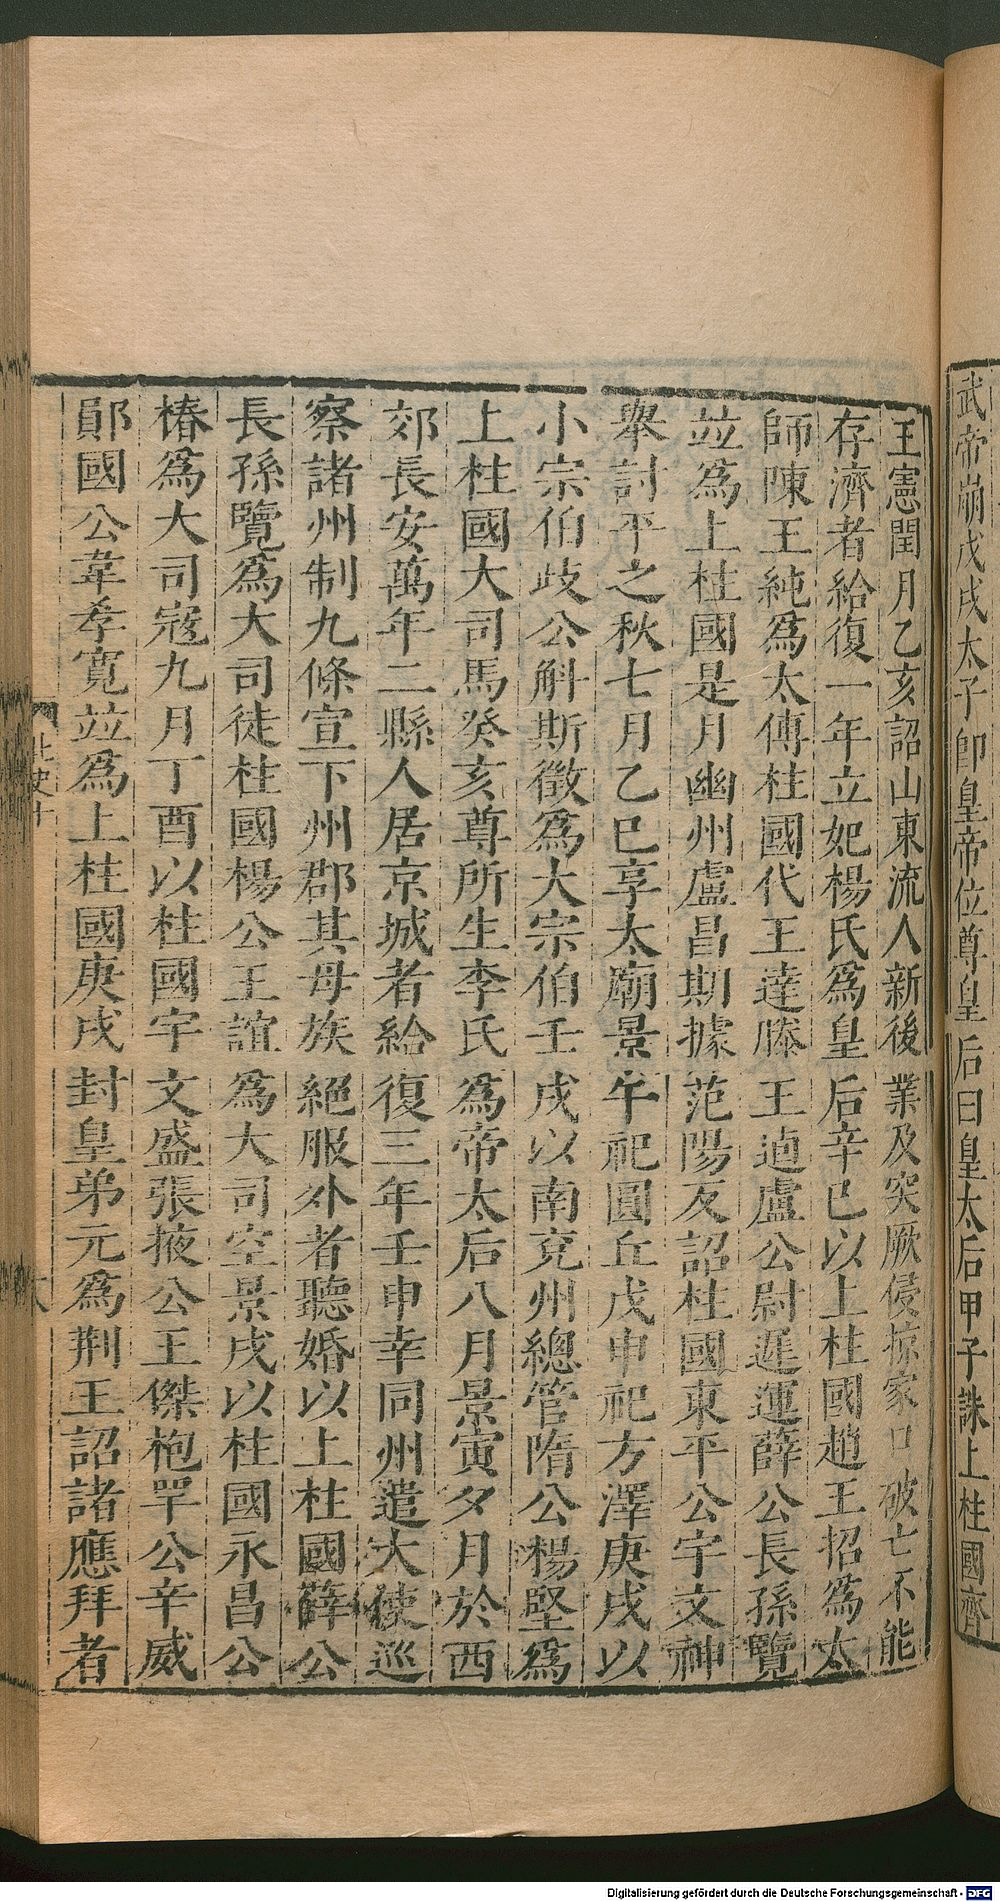 武帝崩戊戌太子卽皇帝位尊皇后曰皇太后甲子誅上柱國齊
王憲閏月乙亥詔山東流人新復業及突厥侵掠家口破亡不能
存濟者給復一年立妃楊氏爲皇后辛巳以上柱國趙王招爲太
師陳王純爲太傅柱國代王達滕王逌盧公尉遲運薛公長孫覽
竝爲上柱國是月幽州盧昌期據范陽反詔柱國東平公宇文神
舉討平之秋七月乙巳享太廟景午祀圓丘戊申祀方澤庚戌以
小宗伯歧公斛斯徵爲大宗伯壬戌以南兗州總管隋公楊堅爲
上柱國大司馬癸亥尊所生李氏爲帝太后八月景寅夕月於西
郊長安萬年二縣人居京城者給復三年壬申幸同州遣大使巡
察諸州制九條宣下州郡其母族絕服外者聽婚以上柱國薛公
長孫覽爲大司徒柱國楊公王誼爲大司空景戌以柱國永昌公
椿爲大司寇九月丁酉以柱國宇文盛張掖公王傑枹罕公辛威
鄖國公韋孝寬竝爲上柱國庚戌封皇弟元爲荆王詔諸應拜者
北史十
Digitalisierung gefördert durch die Deutsche Forschungsgemeinschaft - DFG